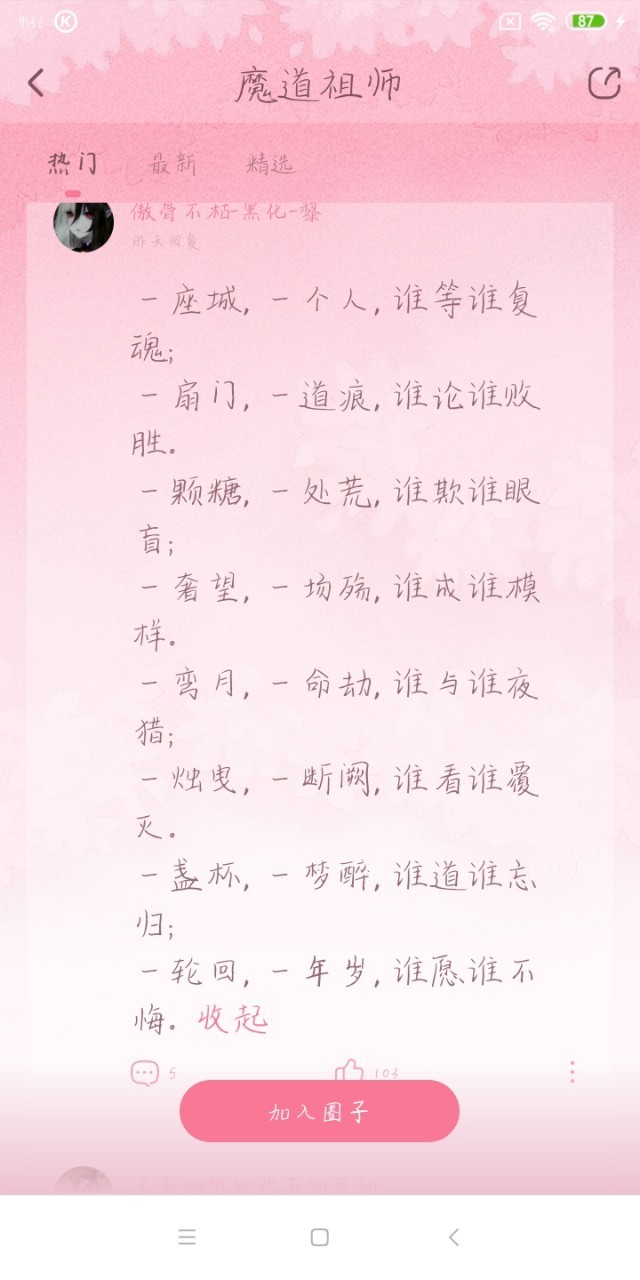 9:36
87
魔道祖师
热门 最新 精选
傲骨不枯-黑化-黎
昨天回复
一座城，一个人，谁等谁复
魂；
一扇门，一道痕，谁论谁败
胜。
一颗糖，一处荒，谁欺谁眼
盲；
一奢望，一场殇，谁成谁模
样。
一弯月，一命劫，谁与谁夜
猎；
一烛曳，一断阙，谁看谁覆
灭。
一盏杯，一梦醉，谁道谁忘
归；
一轮回，一年岁，谁愿谁不
悔。收起
5 103
加入圈子